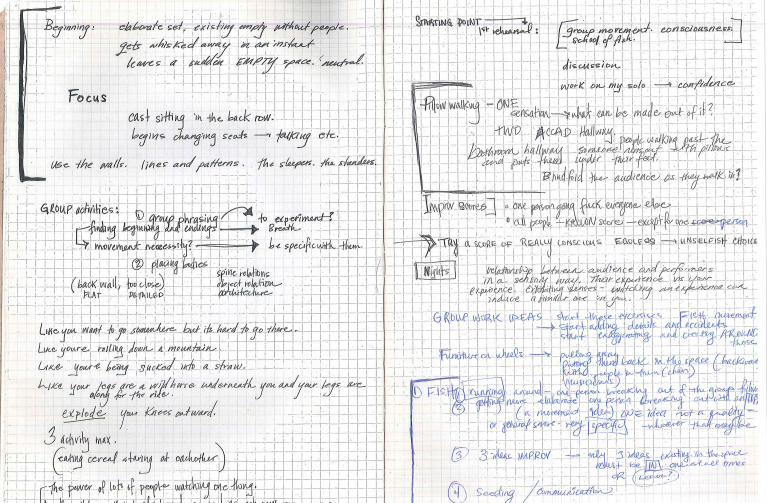 Beginning: elaborate set, existing empty without people.
gets whisked away in an instant
leaves a sudden EMPTY space. neutral.
Focus
cast sitting in the back row.
begins changing seats → talking etc.
use the walls. lines and patterns. the sleepers. the standers.
GROUP activities:
① group phrasing to experiment?
finding beginning and endings → Breath
movement necessity? → be specific with them
② placing bodies
(back wall, too close) spine relations
FLAT DETAILED object relation
architecture
Like you want to go somewhere but its hard to go there.
Like you're rolling down a mountain.
Like you're being sucked into a straw.
Like your legs are a wild horse underneath you and your legs are
along for the ride.
explode your knees outward.
3 activity max.
(eating cereal staring at eachother)
The power of lots of people watching one thing.
STARTING POINT →
1st rehearsal: [group movement. consciousness
school of fish.]
discussion
work on my solo → confidence
Pillow walking - ONE
sensation → what can be made out of it?
TWO ACCAD Hallway
bathroom hallway people walking past the
someone with pillows
and puts them under their feet.
Blindfold the audience as they walk in?
Improv scores • one person going fuck everyone else
• all people - KNOWN score - except for one person
TRY A SCORE OF REALLY CONSCIOUS EGOLESS → UNSELFISH CHOICE
Nights relationship between audience and performers
in a sensory way. Their experience vs your
experience exhibiting senses - watching an experience can
induce a similar one in you.
GROUP WORK IDEAS start those exercises FISH movement
→ start adding details and accidents
start exaggerating and creating AROUND
those
Furniture on wheels → pulling away
back in the space (backward
people to train (chairs)
① FISH running around - one person breaking out of the group
② getting more elaborate one person breaking out with an
(a movement idea) ONE idea not a quality -
or general source - very specific - whoever than
③ 3 ideas IMPROV → only 3 ideas existing in the space
must be IN one at all times
OR
④ Seeding / communication